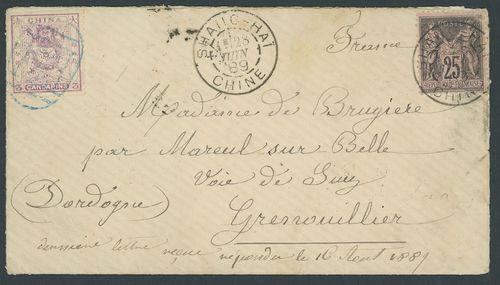 CHINA
CANDARINS
SHANG-HAI
JUIN
89
CHINE
France
25
CHINE
Madame de Brugiere
par Mareuil sur Belle
Voie de
(Dordogne)
Grenouillier
lettre reçue répondu le 16 Aout 1889